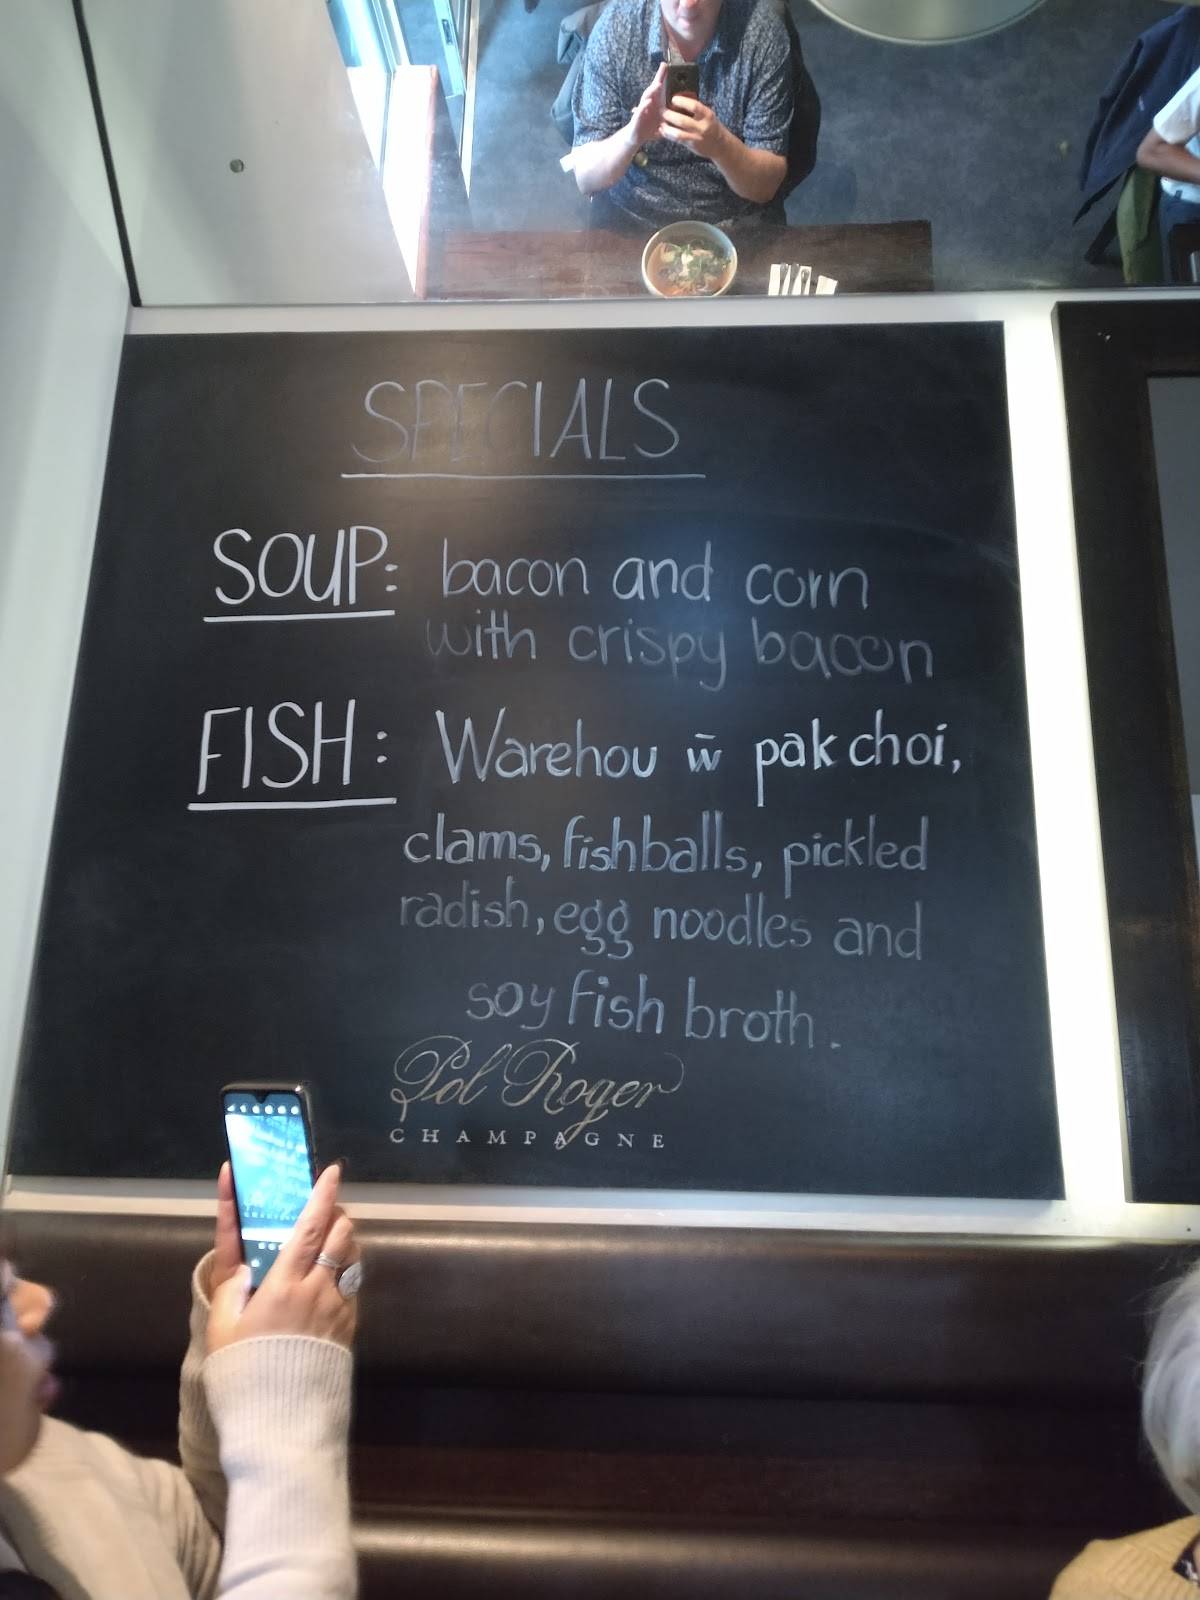 SPECIALS
SOUP: bacon and corn
with crispy bacon
FISH: Warehou w̄ pak choi,
clams, fishballs, pickled
radish, egg noodles and
soy fish broth.
Pol Roger
CHAMPAGNE